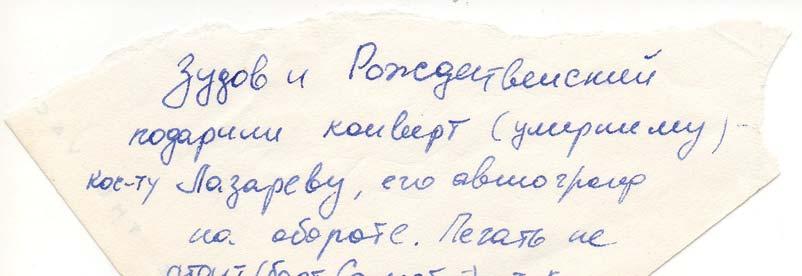 Зудов и Рождественский
подарили конверт (умершему) -
кос-ту Лазареву, его автограф
на обороте. Печать не
стоит (борт